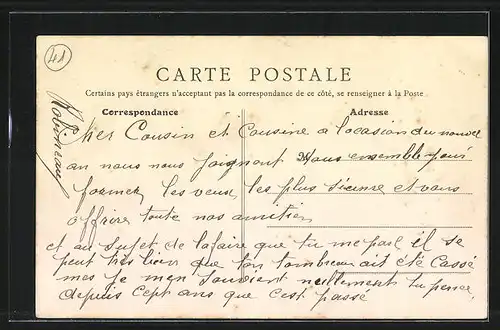 41
CARTE POSTALE
Certains pays étrangers n'acceptant pas la correspondance de ce côté, se renseigner à la Poste
Correspondance
Adresse
Robineau
Cher Cousin et Cousine a locasion du nouvel
an nous nous joignont tous ensemble pour
former les veux les plus sicume et vous
offrire toute nos amitier
et au sujet de lafaire que tu me parl il se
peut tres bien que ton tombeau ait été Cassé
mes je men souvient nullement tu pense
depuis cept ans que c'est passé